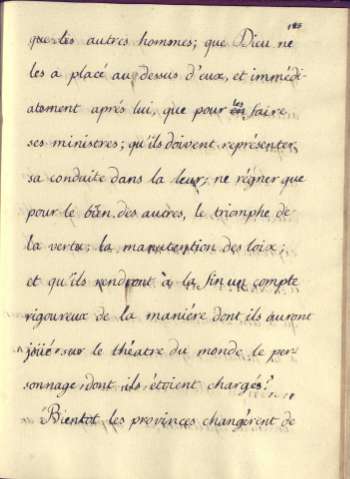 que les autres hommes; que Dieu ne
les a placé au dessus d'eux, et immédi-
atement aprés lui, que pour les faire
ses ministres; qu'ils doivent représenter
sa conduite dans la leur; ne régner que
pour le bien des autres, le triomphe de
la vertu; la manutention des loix;
et qu'ils rendront à la fin un compte
rigoureux de la maniére dont ils auront
joüé sur le théatre du monde le per-
sonnage dont ils étoient chargés.
Bientot les provinces changérent de